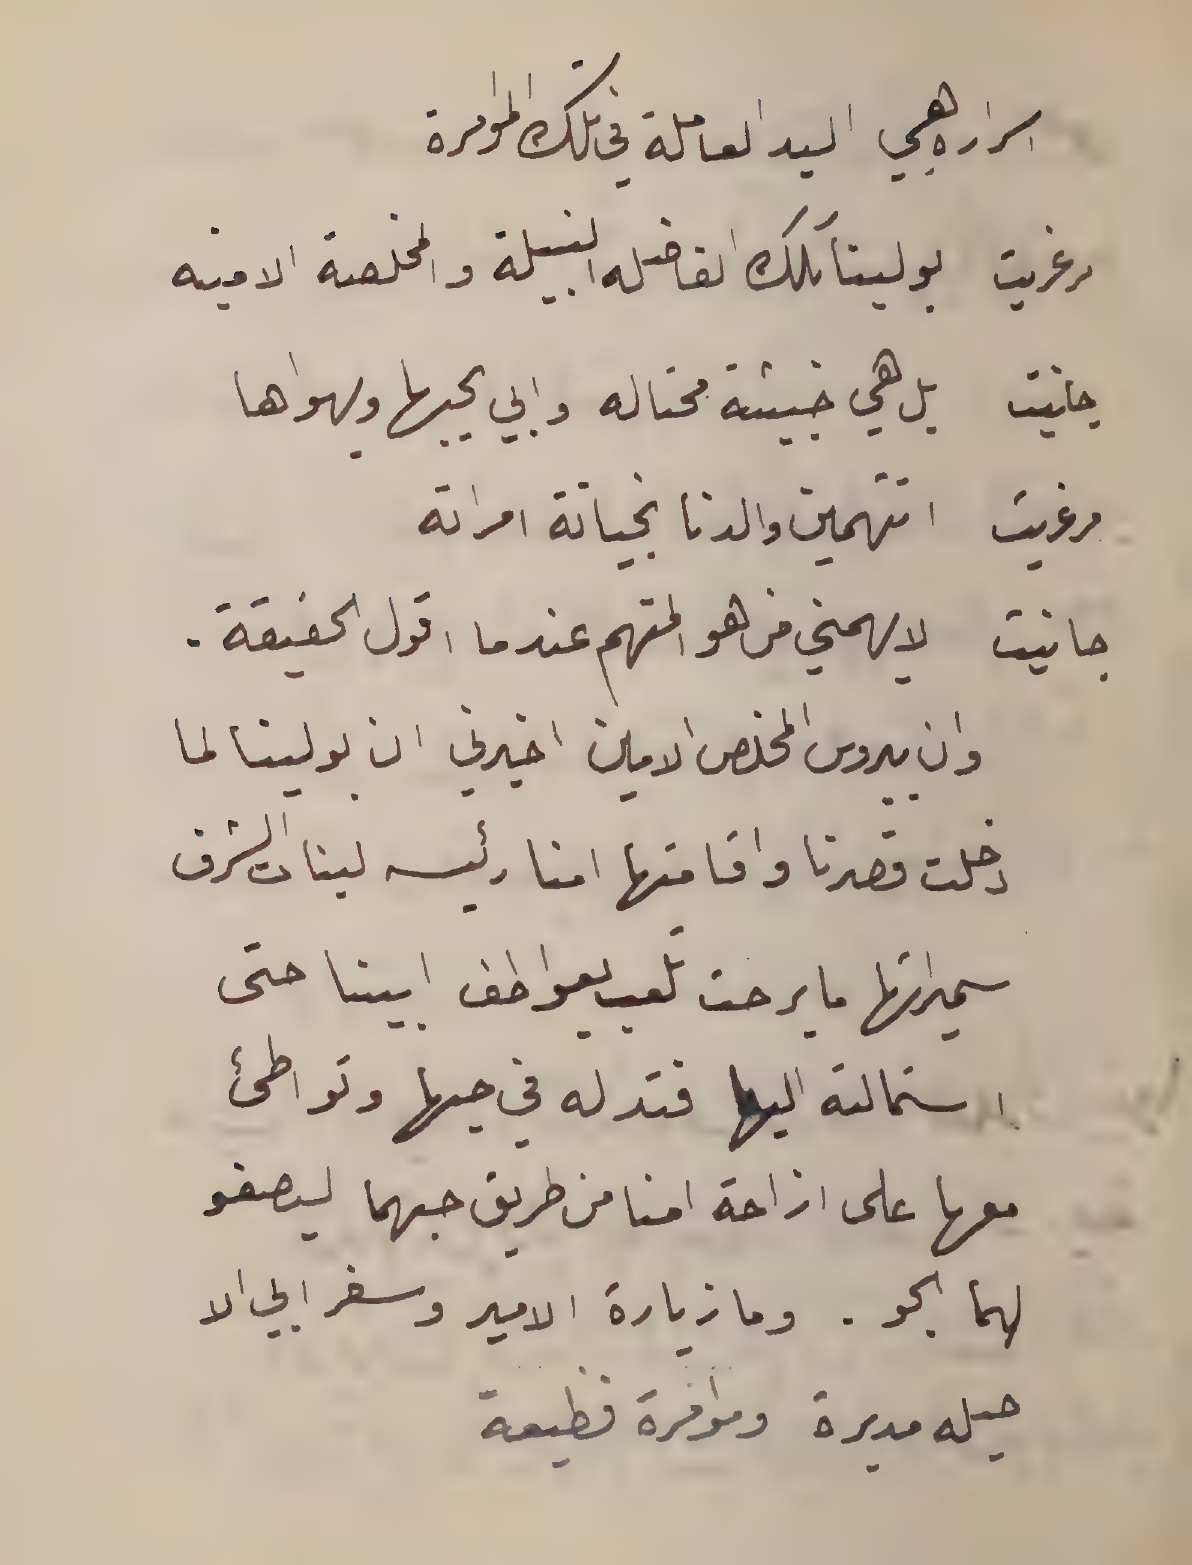 اسراره هي اليد العاملة في تلك المؤامرة
مرغريت بولينا تلك الفاضله النبيلة والمخلصة الامينه
جانيت بل هي خبيثة محتاله وابي يحبها ويهواها
مرغريت اتتهمين والدنا بخيانة امراته
جانيت لا يهمني من هو المتهم عندما اقول الحقيقة .
وان بيدروس المخلص الامين اخبرني ان بولينا لما
دخلت قصرنا واقامتها امنا رئيسه لبنات الشرف
سميراتها ما برحت تلعب بعواطف ابينا حتى
استمالته اليها فتدله في حبها وتواطئ
معها على ازاحة امنا من طريق حبهما ليصفو
لهما الجو . وما زيارة الامير وسفر ابي الا
حيله مدبرة ومؤامرة فظيعة